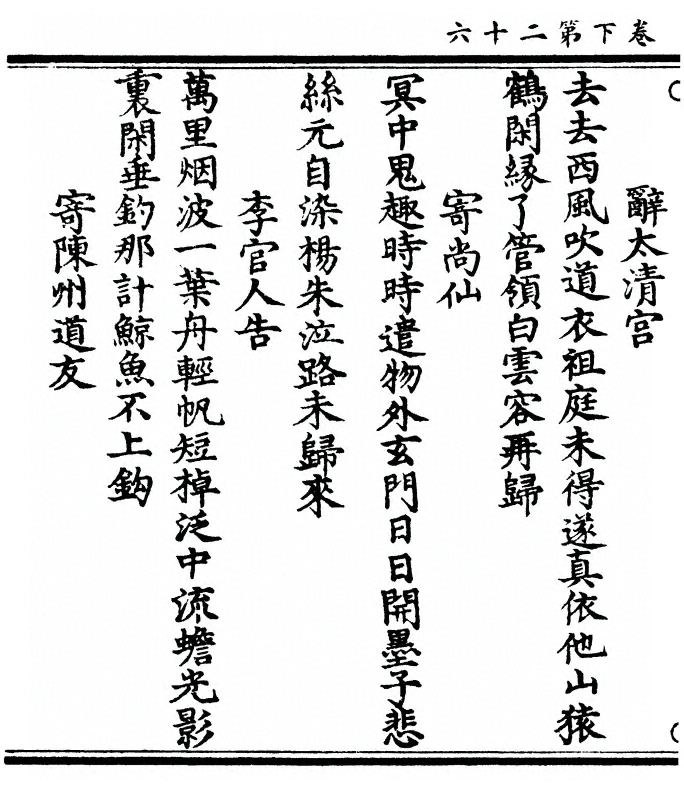 卷下第二十六
辭太清宮
去去西風吹道衣祖庭未得遂真依他山猿
鶴閑緣了管領白雲容再歸
寄尚仙
冥中鬼趣時時遣物外玄門日日開墨子悲
絲元自染楊朱泣路未歸來
李官人告
萬里烟波一葉舟輕帆短棹泛中流蟾光影
裏閑垂釣那計鯨魚不上鈎
寄陳州道友